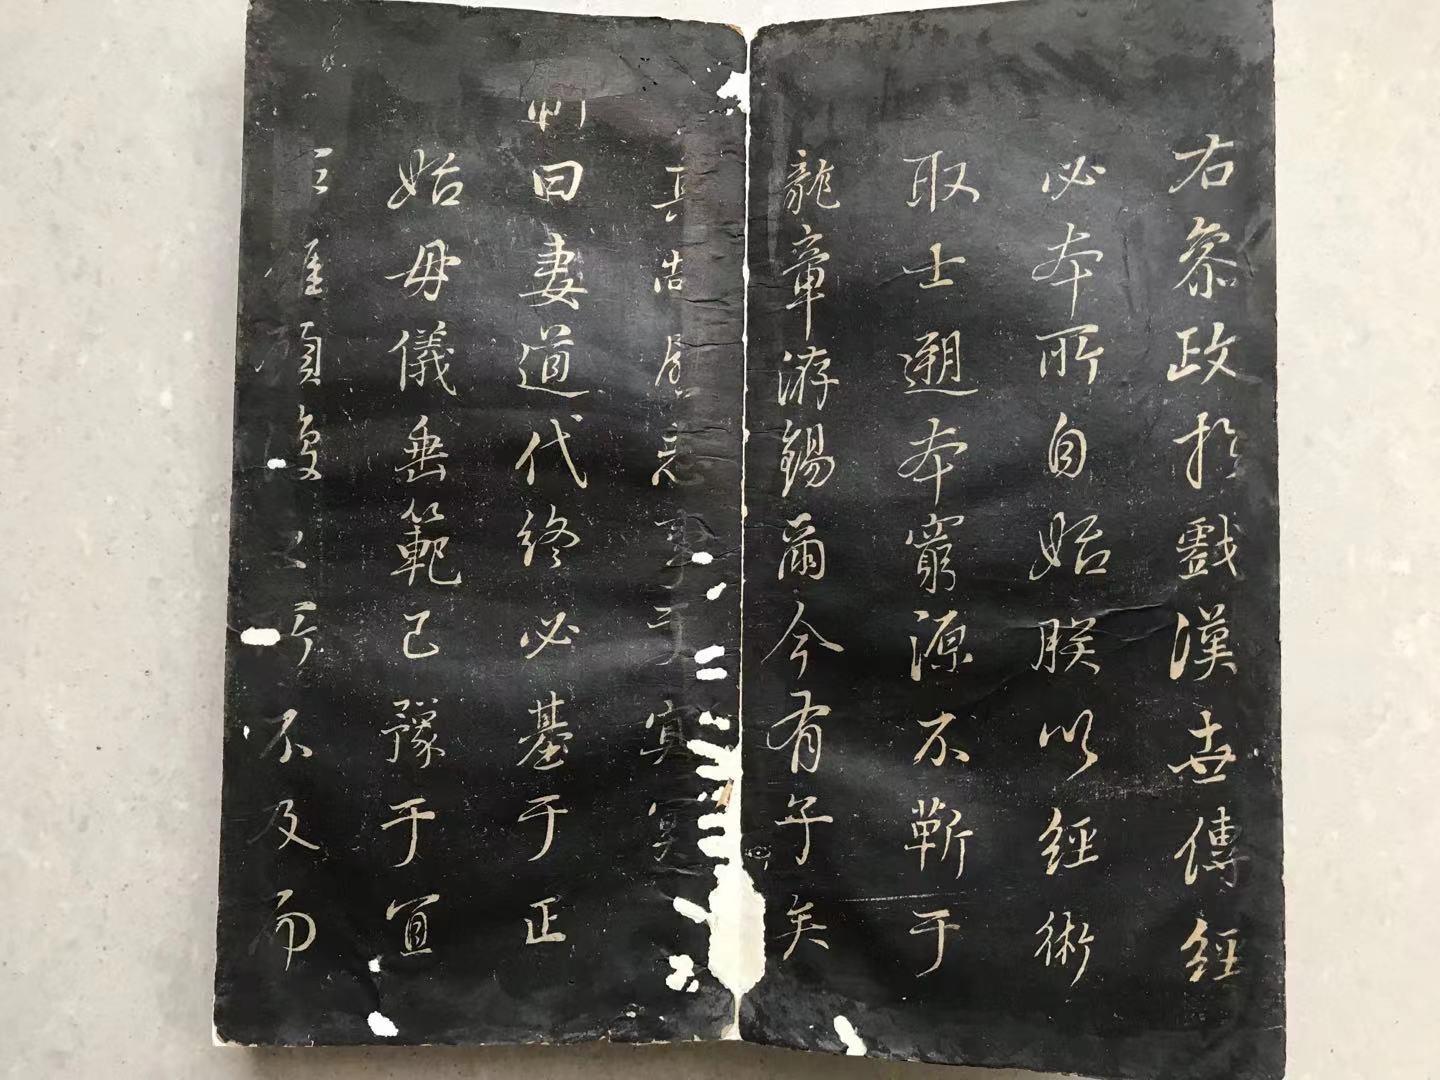 右參政於戲漢世傳經
必本所自始朕以經術
取士遡本窮源不蘄于
龍章游錫爾今有子矣
真誥慰
制曰妻道代終必基于正
始毋儀垂範已豫于宜
不及而